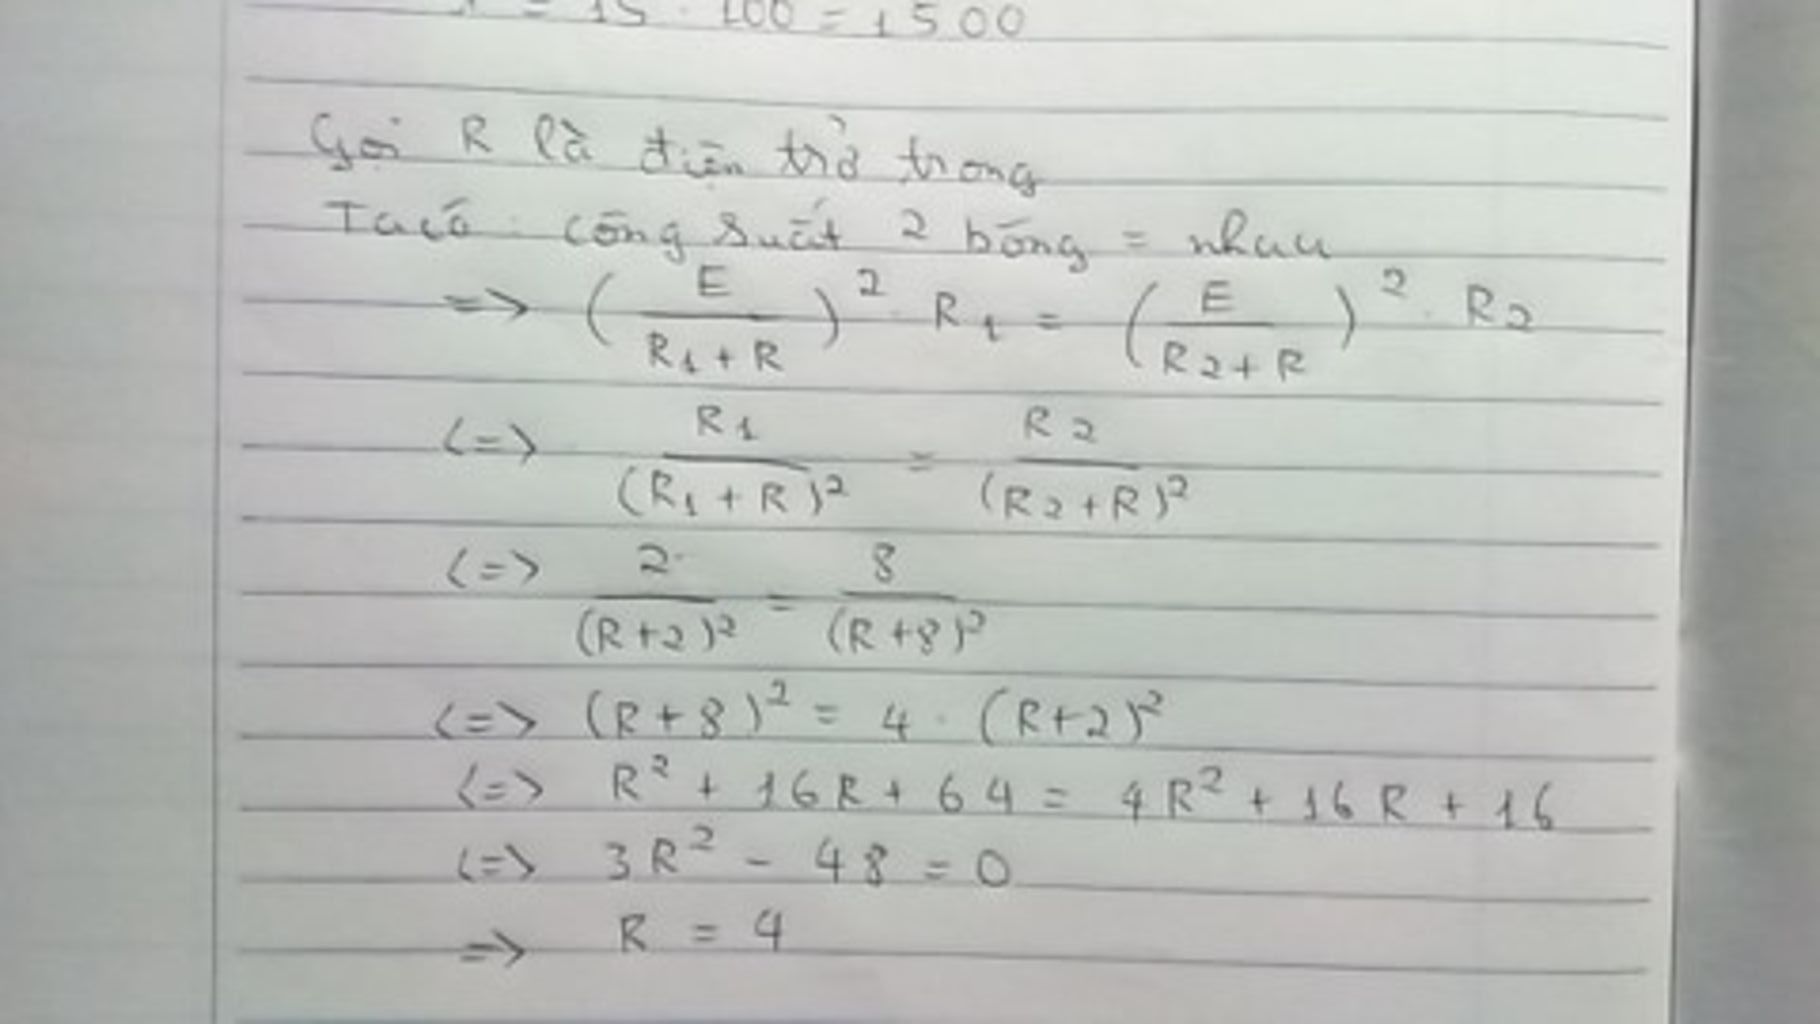 = 15 . 100 = 1500
Gọi R là điện trở trong
Ta có : công suất 2 bóng = nhau
=> (E / (R1 + R))² . R1 = (E / (R2 + R))² . R2
<=> R1 / (R1 + R)² = R2 / (R2 + R)²
<=> 2 / (R + 2)² = 8 / (R + 8)²
<=> (R + 8)² = 4 . (R + 2)²
<=> R² + 16R + 64 = 4R² + 16R + 16
<=> 3R² - 48 = 0
=> R = 4